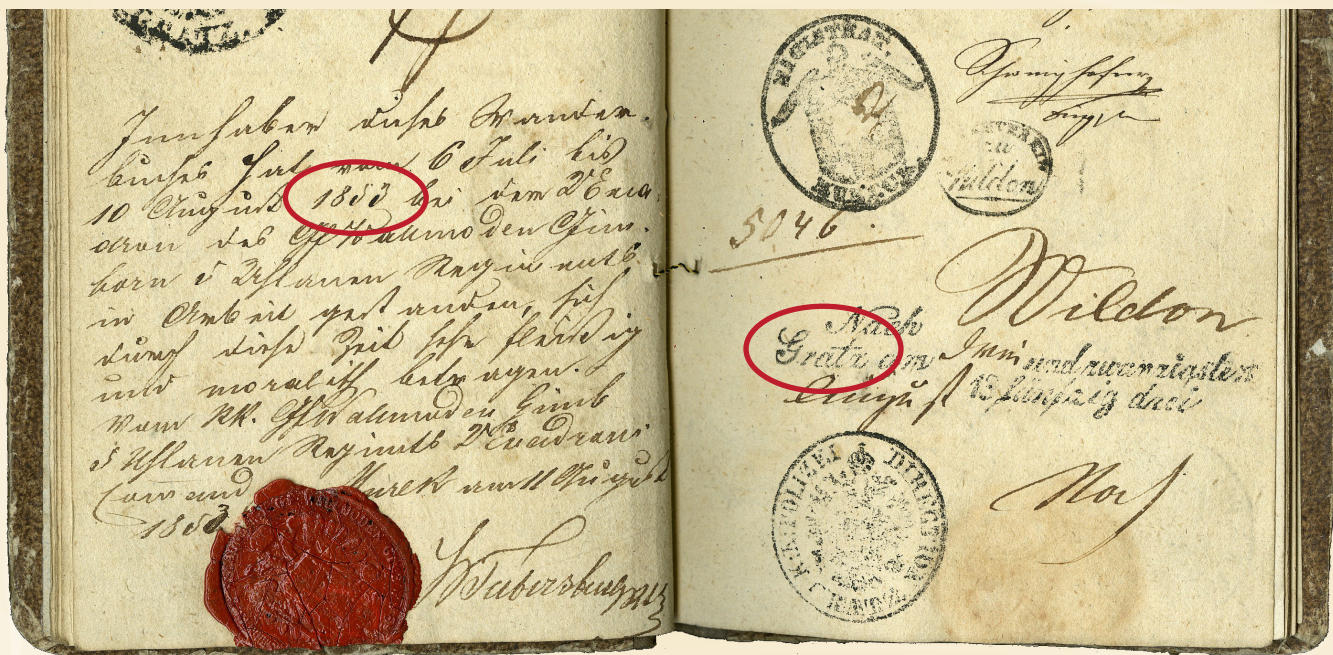 Innhaber dieses Wander-
buches hat vom 6 Juli bis
10 August 1853 bei der 2 Esca-
dron des Gf Wallmoden Gim-
born 5 Uhlanen Regiments
in Arbeit gestanden, sich
durch diese Zeit sehr fleissig
und moralisch betragen.
Vom KK. Gf Wallmoden Gimb
5 Uhlanen Regimts 2 Escadrons
Comand Mureck am 11 August
1853
MAGISTRAT
MURECK
zu
Wildon
5046.
Wildon
Nach
Gratz am drei und zwanzigsten
August 18 fünfzig drei
K.K. POLIZEI DIRECTION